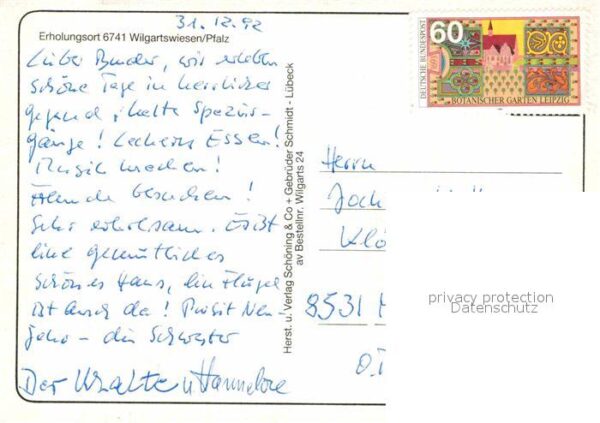 31.12.92
Erholungsort 6741 Wilgartswiesen/Pfalz
Lieber Bruder, wir erleben
schöne Tage in herrlicher
Gegend, kalte Spazier-
gänge! Leckeres Essen!
Musik machen!
Freunde besuchen!
Sehr erholsam. Es ist
ein gemütliches
schönes Haus, ein Flügel
ist auch da! Prosit Neu-
jahr - die Schwester
Der Uralte u Hannelore
Herst. u. Verlag Schöning & Co + Gebrüder Schmidt - Lübeck
av Bestellnr. Wilgarts 24
60
DEUTSCHE BUNDESPOST
BOTANISCHER GARTEN LEIPZIG
Herrn
Joch
Klö
8531
privacy protection
Datenschutz